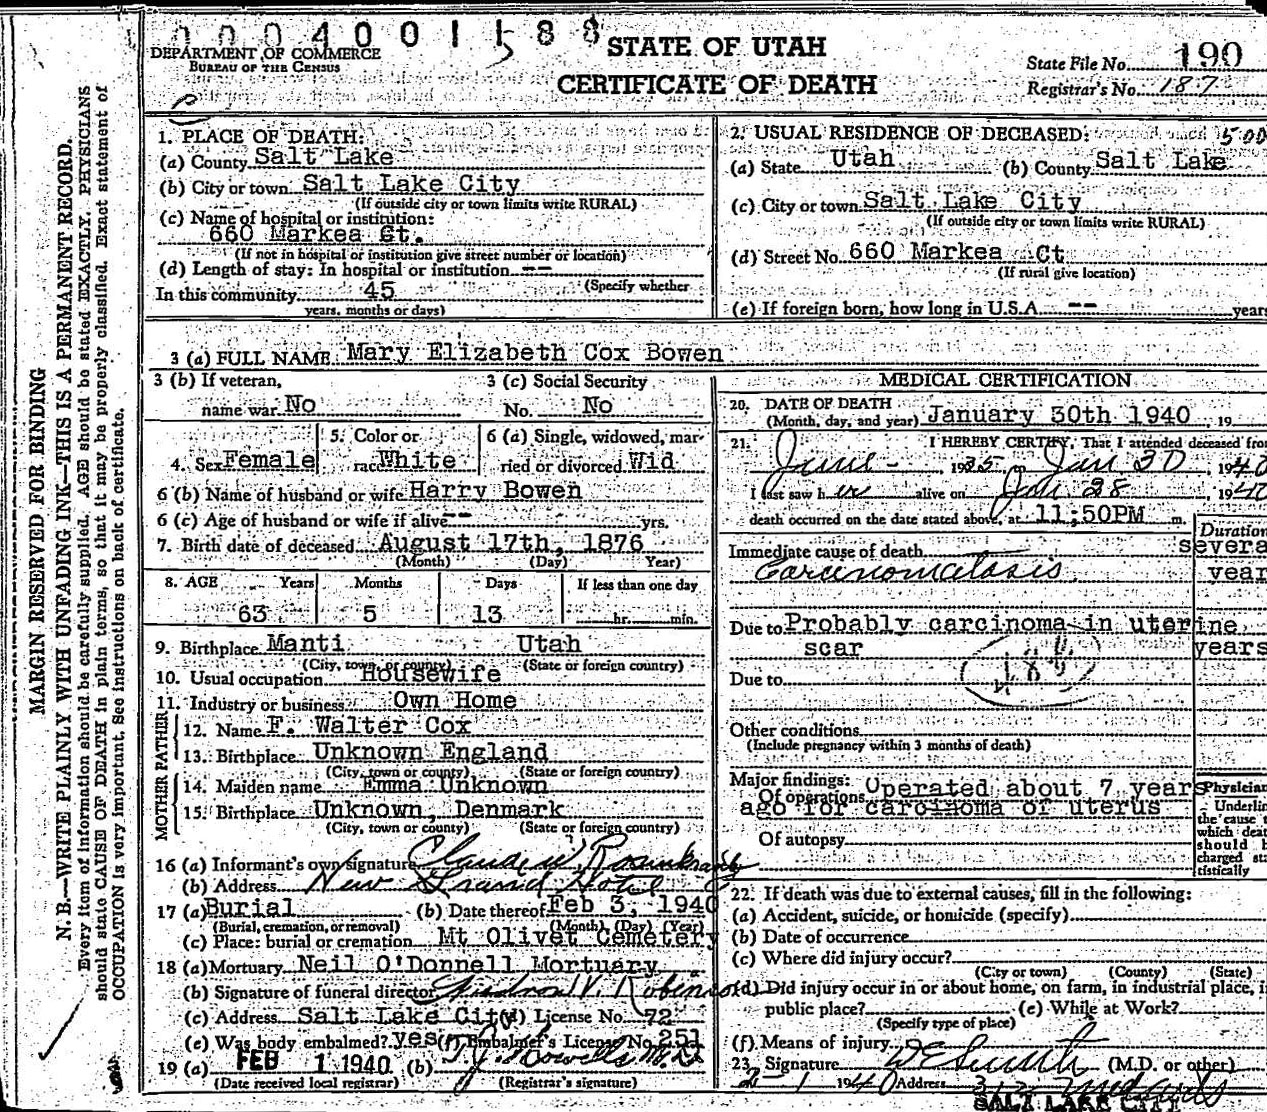 0004001188
DEPARTMENT OF COMMERCE
BUREAU OF THE CENSUS
STATE OF UTAH
CERTIFICATE OF DEATH
State File No. 190
Registrar's No. 187
MARGIN RESERVED FOR BINDING
N. B.—WRITE PLAINLY WITH UNFADING INK—THIS IS A PERMANENT RECORD.
Every item of information should be carefully supplied. AGE should be stated EXACTLY. PHYSICIANS
should state CAUSE OF DEATH in plain terms, so that it may be properly classified. Exact statement of
OCCUPATION is very important. See instructions on back of certificate.
1. PLACE OF DEATH:
(a) County Salt Lake
(b) City or town Salt Lake City
(If outside city or town limits write RURAL)
(c) Name of hospital or institution:
660 Markea Ct.
(If not in hospital or institution give street number or location)
(d) Length of stay: In hospital or institution --
(Specify whether
In this community 45
years, months or days)
2. USUAL RESIDENCE OF DECEASED: 500
(a) State Utah (b) County Salt Lake
(c) City or town Salt Lake City
(If outside city or town limits write RURAL)
(d) Street No. 660 Markea Ct
(If rural give location)
(e) If foreign born, how long in U.S.A. -- years
3 (a) FULL NAME Mary Elizabeth Cox Bowen
3 (b) If veteran,
name war No
3 (c) Social Security
No. No
4. Sex Female
5. Color or
race White
6 (a) Single, widowed, mar-
ried or divorced Wid
6 (b) Name of husband or wife Harry Bowen
6 (c) Age of husband or wife if alive -- yrs.
7. Birth date of deceased August 17th, 1876
(Month) (Day) Year)
8. AGE Years Months Days If less than one day
63 5 13 hr. min.
9. Birthplace Manti Utah
(City, town, or county) (State or foreign country)
10. Usual occupation Housewife
11. Industry or business Own Home
FATHER
12. Name F. Walter Cox
13. Birthplace Unknown England
(City, town or county) (State or foreign country)
MOTHER
14. Maiden name Emma Unknown
15. Birthplace Unknown, Denmark
(City, town or county) (State or foreign country)
16 (a) Informant's own signature Claude W. Rosenkrantz
(b) Address New Grand Hotel
17 (a) Burial (b) Date thereof Feb 3, 1940
(Burial, cremation, or removal) (Month) (Day) (Year)
(c) Place: burial or cremation Mt Olivet Cemetery
18 (a) Mortuary Neil O'Donnell Mortuary
(b) Signature of funeral director V. Robinson
(c) Address Salt Lake City (d) License No. 72
(e) Was body embalmed? yes (f) Embalmer's License No. 251
19 (a) FEB 1 1940 (b)
(Date received local registrar) (Registrar's signature)
MEDICAL CERTIFICATION
20. DATE OF DEATH
(Month, day, and year) January 30th 1940, 19
21. I HEREBY CERTIFY, That I attended deceased from
June - , 1935, to Jan 30, 1940
I last saw her alive on Jan 28, 1940
death occurred on the date stated above, at 11;50PM m.
Duration
Immediate cause of death severa
Carcinomatosis year
Due to Probably carcinoma in uterine
scar years
Due to
Other conditions
(Include pregnancy within 3 months of death)
Major findings:
Of operations Operated about 7 years
ago for carcinoma of uterus
Of autopsy
Physician
Underlin
the cause t
which deat
should b
charged sta
tistically
22. If death was due to external causes, fill in the following:
(a) Accident, suicide, or homicide (specify)
(b) Date of occurrence
(c) Where did injury occur?
(City or town) (County) (State)
(d) Did injury occur in or about home, on farm, in industrial place, i
public place? (e) While at Work?
(Specify type of place)
(f) Means of injury
23. Signature W E Smith (M.D. or other)
2-1 1940 Address
SALT LAKE CITY